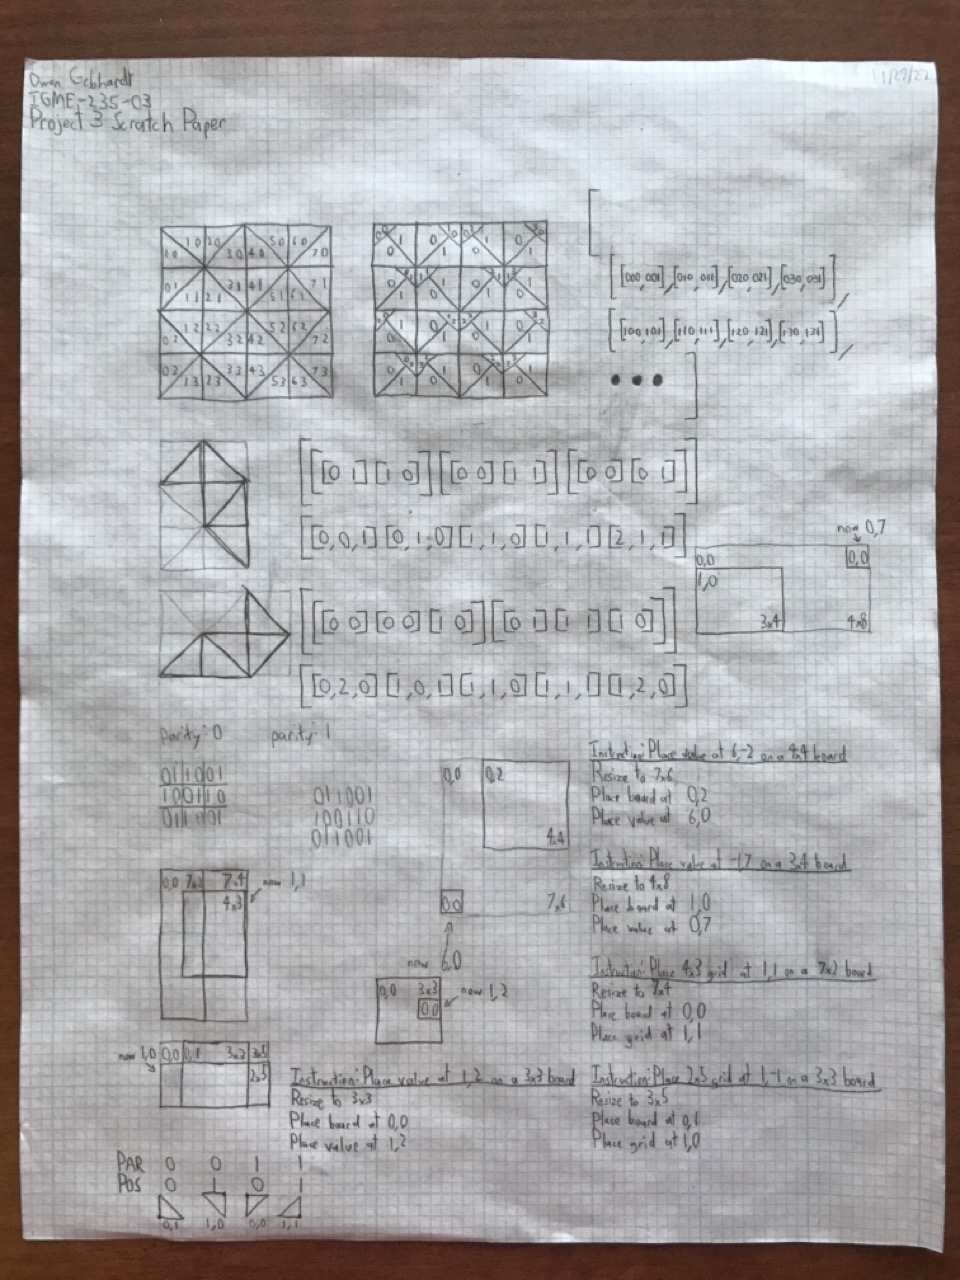 Owen Gebhardt
11/29/22
IGME-235-03
Project 3 Scratch Paper
00 10 20 30 40 50 60 70
01 11 21 31 41 51 61 71
02 12 22 32 42 52 62 72
03 13 23 33 43 53 63 73
[
[[000,001],[010,011],[020,021],[030,031]],
[[100,101],[110,111],[120,121],[130,131]],
•••
]
[[[0 1][1 0]][[0 0][1 1]][[0 0][0 1]]]
[[0,0,1][0,1,0][1,1,0][1,1,1][2,1,1]]
now 0,7
0,0
0,0
1,0
3x4
4x8
[[[0 0][0 0][1 0]][[0 1][1 1][1 0]]]
[[0,2,0][1,0,1][1,1,0][1,1,1][1,2,0]]
parity: 0
parity: 1
011001
100110
011001
011001
100110
011001
0,0
0,2
4x4
0,0
7x6
now 6,0
Instruction: Place value at 6,-2 on a 4x4 board
Resize to 7x6
Place board at 0,2
Place value at 6,0
Instruction: Place value at -1,7 on a 3x4 board
Resize to 4x8
Place board at 1,0
Place value at 0,7
0,0 7x2 7x4
4x3
now 1,1
Instruction: Place 4x3 grid at 1,1 on a 7x2 board
Resize to 7x4
Place board at 0,0
Place grid at 1,1
0,0 3x3
0,0
now 1,2
now 1,0
0,0 0,1 3x2 3x5
2x5
Instruction: Place value at 1,2 on a 3x3 board
Resize to 3x3
Place board at 0,0
Place value at 1,2
Instruction: Place 2x5 grid at 1,-1 on a 3x3 board
Resize to 3x5
Place board at 0,1
Place grid at 1,0
PAR 0 0 1 1
POS 0 1 0 1
0,1 1,0 0,0 1,1